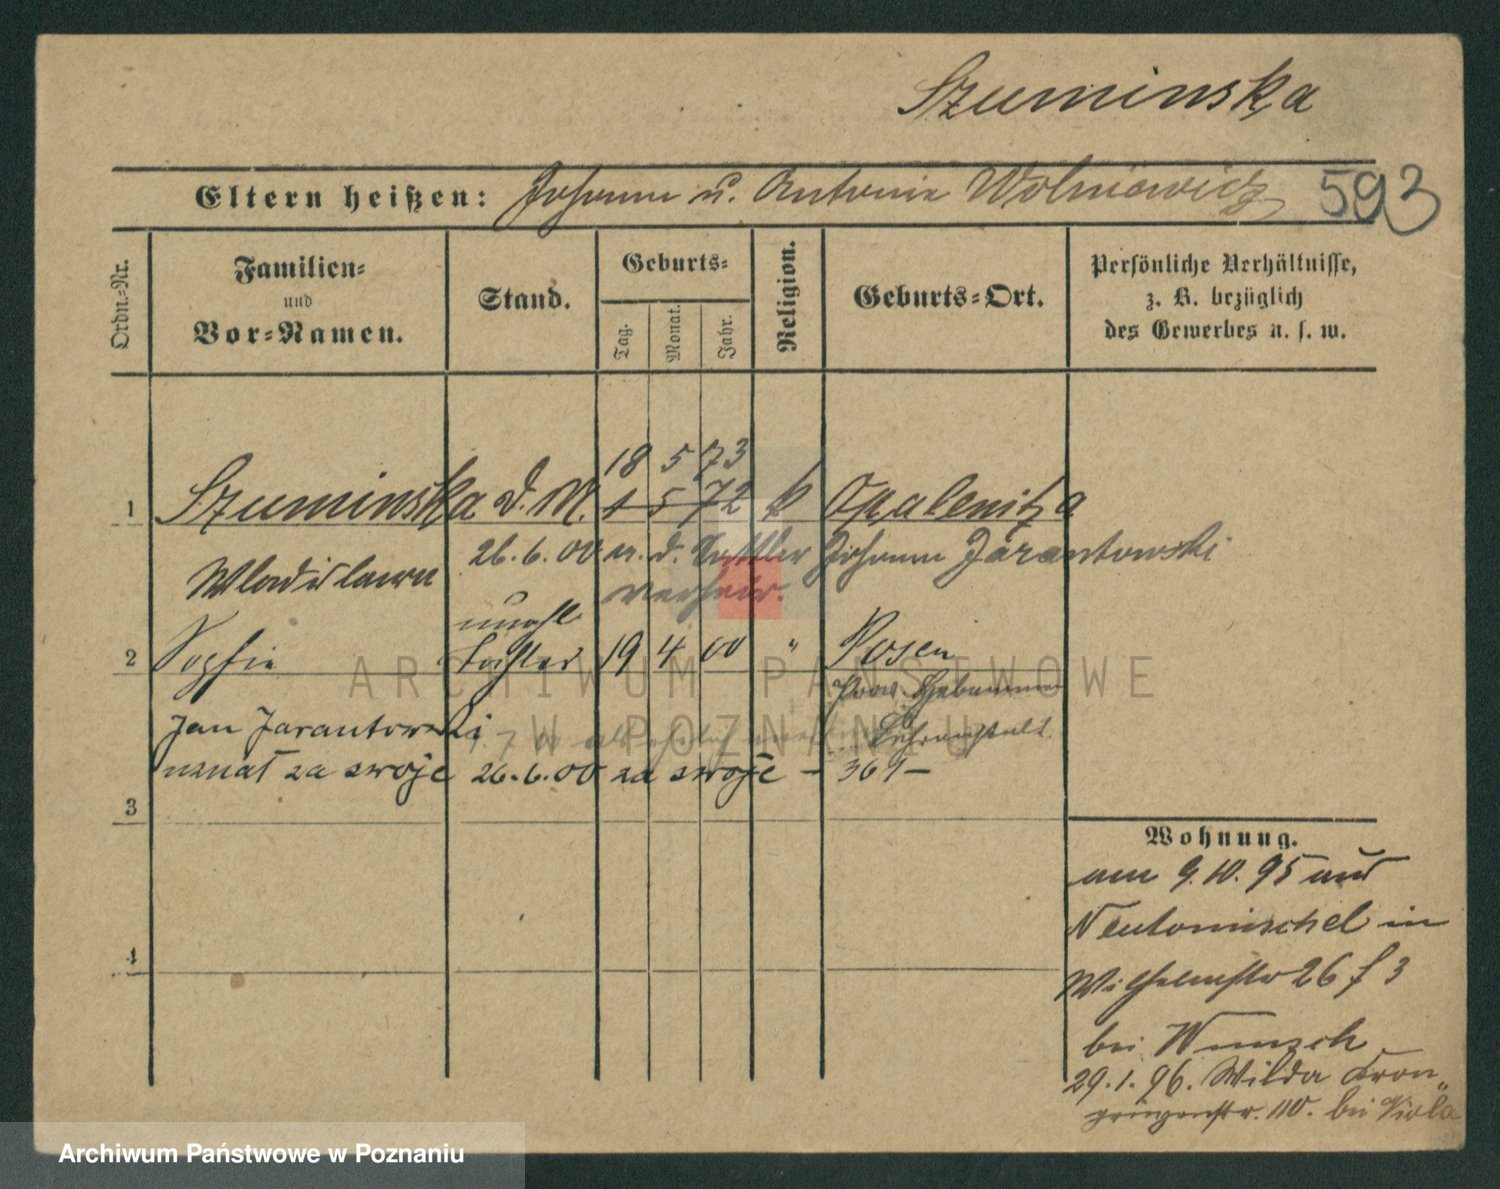 Szuminska
Eltern heißen: Johann u. Antonie Wolniewicz 593
Ordn.-Nr.
Familien-
und
Vor-Namen.
Stand.
Geburts-
Tag.
Monat.
Jahr.
Religion.
Geburts-Ort.
Persönliche Verhältnisse,
z. B. bezüglich
des Gewerbes u. s. w.
18 5 73
1 Szuminska D. M. 1 5 72 k Opalenitza
26.6.00 m. d. Sattler Johann Jarantowski
Wladislawa verheir.
unehl
2 Sophie Tochter 19 4 00 " Posen
Prov. Hebammen
Jan Jarantowski Lehranstalt.
uznał za swoje 26.6.00 za swoje - 369 -
3
Wohnung.
am 9.10.95 aus
Neutomischel in
4
Wilhelmstr 26 f 3
bei Wunsch
29.1.96. Wilda Kron
prinzenstr. 110. bei Viola
ARCHIWUM PAŃSTWOWE
W POZNANIU
Archiwum Państwowe w Poznaniu